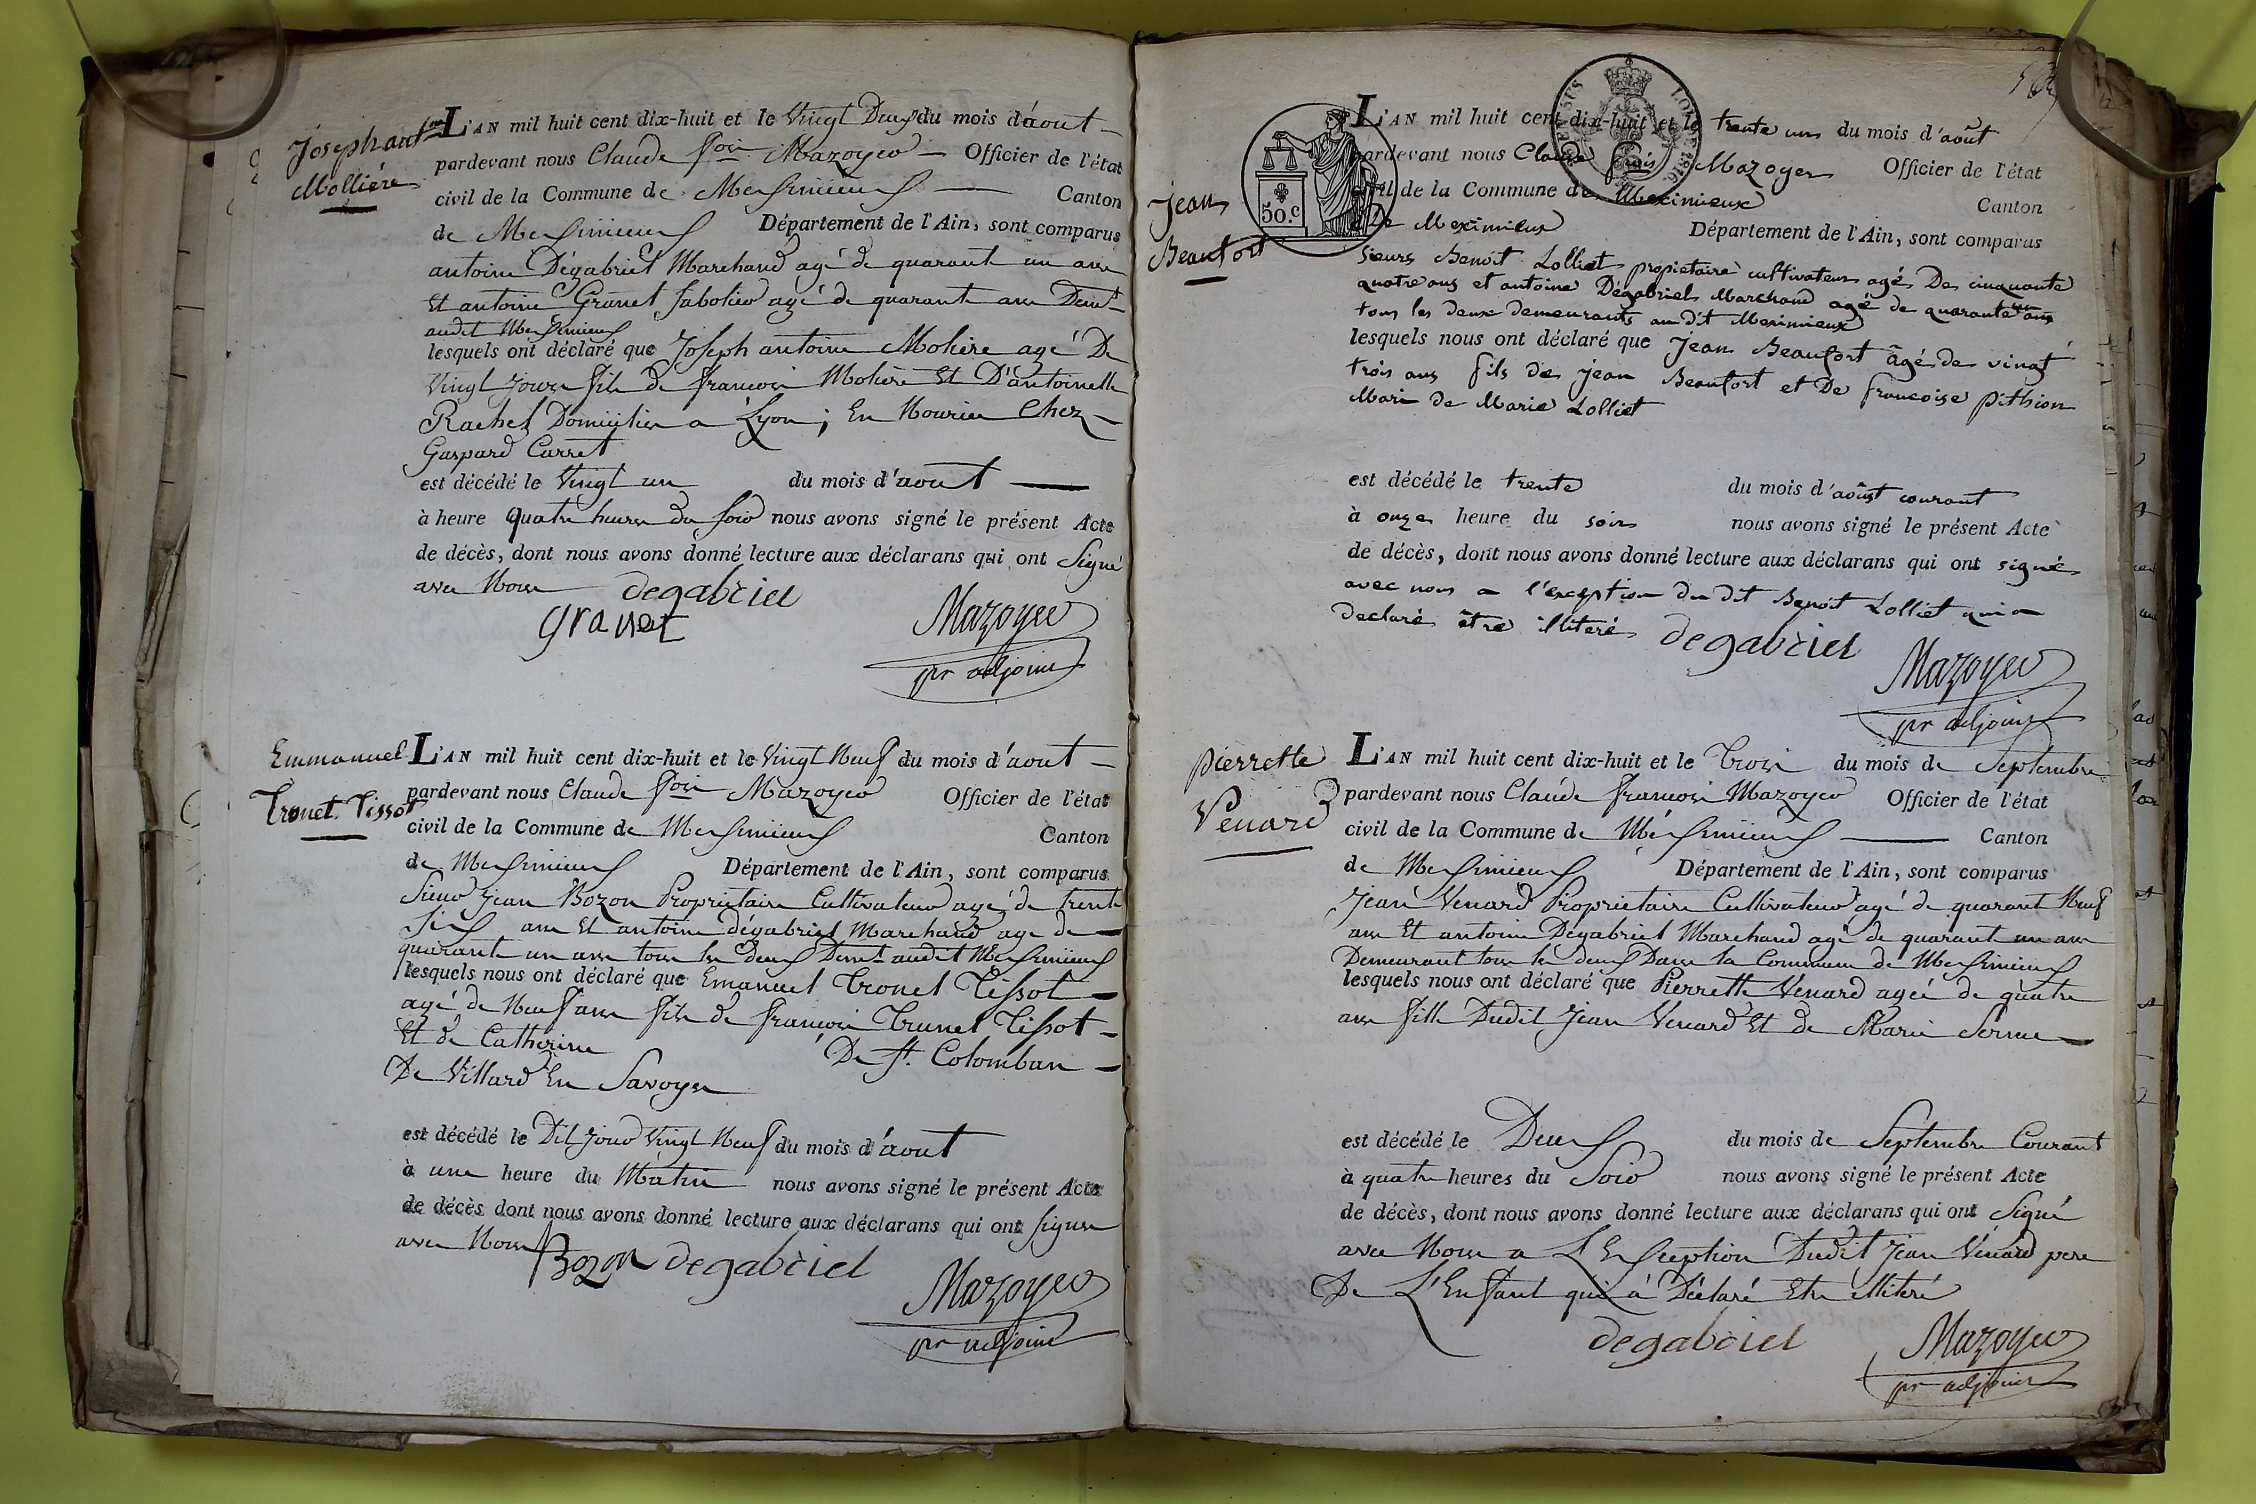 Joseph ant.ne
Mollière
L'AN mil huit cent dix-huit et le Vingt Deux du mois d'aout
pardevant nous Claude fois Mazoyer Officier de l'état
civil de la Commune de Meximieux Canton
de Meximieux Département de l'Ain, sont comparus
antoine Dégabriel Marchand agé de quarant un ans
Et antoine Granet Sabotier agé de quarante ans Demt
audit Meximieux
lesquels ont déclaré que Joseph antoine Molière agé De
Vingt jours fils de francois Molière Et D'antoinette
Rachel Domiciliés a Lyon ; En Nourice Chez
Gaspard Carret
est décédé le Vingt un du mois d'aout
à heure quatre heures du soir nous avons signé le présent Acte
de décès, dont nous avons donné lecture aux déclarans qui ont Signé
avec Nous degabriel
granet Mazoyer
pr adjoint
Emmanuel
Tronet Tissot
L'AN mil huit cent dix-huit et le Vingt Neuf du mois d'aout
pardevant nous Claude fois Mazoyer Officier de l'état
civil de la Commune de Meximieux Canton
de Meximieux Département de l'Ain, sont comparus
Sieur Jean Bozon Propriétaire Cultivateur agé de trente
Six ans Et antoine dégabriel Marchand age de
quarant un ans tous les deux Demt audit Meximieux
lesquels nous ont déclaré que Emanuel Tronel Tissot
agé de Neuf ans fils de francois Trunel Tissot
Et de Catherine De St Colomban
De Villard En Savoye
est décédé le Dit jour Vingt Neuf du mois d'aout
à une heure du Matin nous avons signé le présent Acte
de décès dont nous avons donné lecture aux déclarans qui ont signés
avec Nous Bozon degabriel
Mazoyer
pr adjoint
50.c
LOI DE 1816.
Jean
Beaufort
L'AN mil huit cent dix-huit et le trente un du mois d'août
pardevant nous Claude fois Mazoyer Officier de l'état
civil de la Commune de Meximieux Canton
de Meximieux Département de l'Ain, sont comparus
sieurs Benoit Lolliet propietaire cultivateur agé De cinquante
quatre ans et antoine Dégabriel Marchand agé de quarante un ans
tous les deux demeurants au dit Meximieux
lesquels nous ont déclaré que Jean Beaufort âgé de vingt
trois ans fils de jean Beaufort et De francoise pithion
Mari de Marie Lolliet
est décédé le trente du mois d'août courant
à onze heure du soir nous avons signé le présent Acte
de décès, dont nous avons donné lecture aux déclarans qui ont signé
avec nous a l'exception du dit Benoit Lolliet qui a
declaré être illiteré degabriel
Mazoyer
pr adjoint
pierrette
Venard
L'AN mil huit cent dix-huit et le Trois du mois de Septembre
pardevant nous Claude francois Mazoyer Officier de l'état
civil de la Commune de Meximieux Canton
de Meximieux Département de l'Ain, sont comparus
Jean Venard Propriétaire Cultivateur agé de quarant Neuf
ans Et antoine Degabriel Marchand agé de quarant un ans
Demeurant tous le deux Dans la Commune de Meximieux
lesquels nous ont déclaré que Pierrette Venard ageé de quatre
ans fille Dudit Jean Venard Et de Marie
est décédé le Deux du mois de Septembre Courant
à quatre heures du Soir nous avons signé le présent Acte
de décès, dont nous avons donné lecture aux déclarans qui ont Signé
avec Nous a L'Exception Dudit Jean Venard pere
De L'Enfant qui à Déclaré Etre illiteré
degabriel Mazoyer
pr adjoint